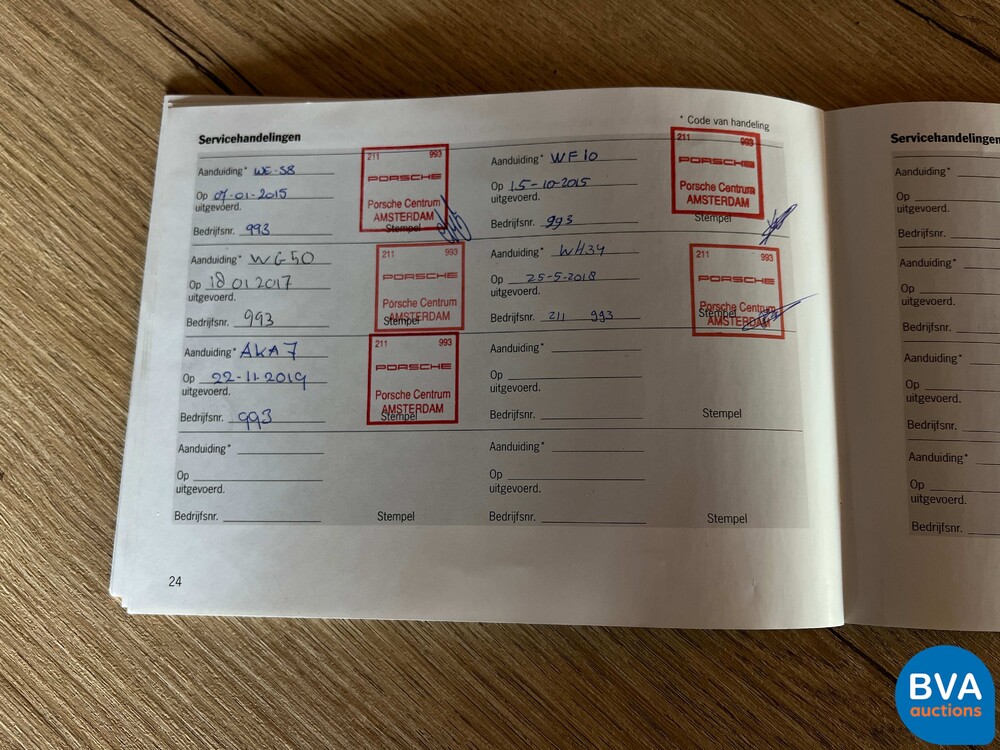 * Code van handeling
Servicehandelingen
Aanduiding* WE-38
Op 07-01-2015
uitgevoerd.
Bedrijfsnr. 993
Stempel
211 993
PORSCHE
Porsche Centrum
AMSTERDAM
Aanduiding* WF10
Op 15-10-2015
uitgevoerd.
Bedrijfsnr. 993
Stempel
211 993
PORSCHE
Porsche Centrum
AMSTERDAM
Aanduiding* WG50
Op 18 01 2017
uitgevoerd.
Bedrijfsnr. 993
Stempel
211 993
PORSCHE
Porsche Centrum
AMSTERDAM
Aanduiding* WH34
Op 25-5-2018
uitgevoerd.
Bedrijfsnr. 211 993
Stempel
211 993
PORSCHE
Porsche Centrum
AMSTERDAM
Aanduiding* AKA7
Op 22-11-2019
uitgevoerd.
Bedrijfsnr. 993
Stempel
211 993
PORSCHE
Porsche Centrum
AMSTERDAM
Aanduiding*
Op
uitgevoerd.
Bedrijfsnr.
Stempel
Aanduiding*
Op
uitgevoerd.
Bedrijfsnr.
Stempel
Aanduiding*
Op
uitgevoerd.
Bedrijfsnr.
Stempel
24
Servicehandelingen
Aanduiding*
Op
uitgevoerd.
Bedrijfsnr.
Aanduiding*
Op
uitgevoerd.
Bedrijfsnr.
Aanduiding*
Op
uitgevoerd.
Bedrijfsnr.
Aanduiding*
Op
uitgevoerd.
Bedrijfsnr.
BVA
auctions